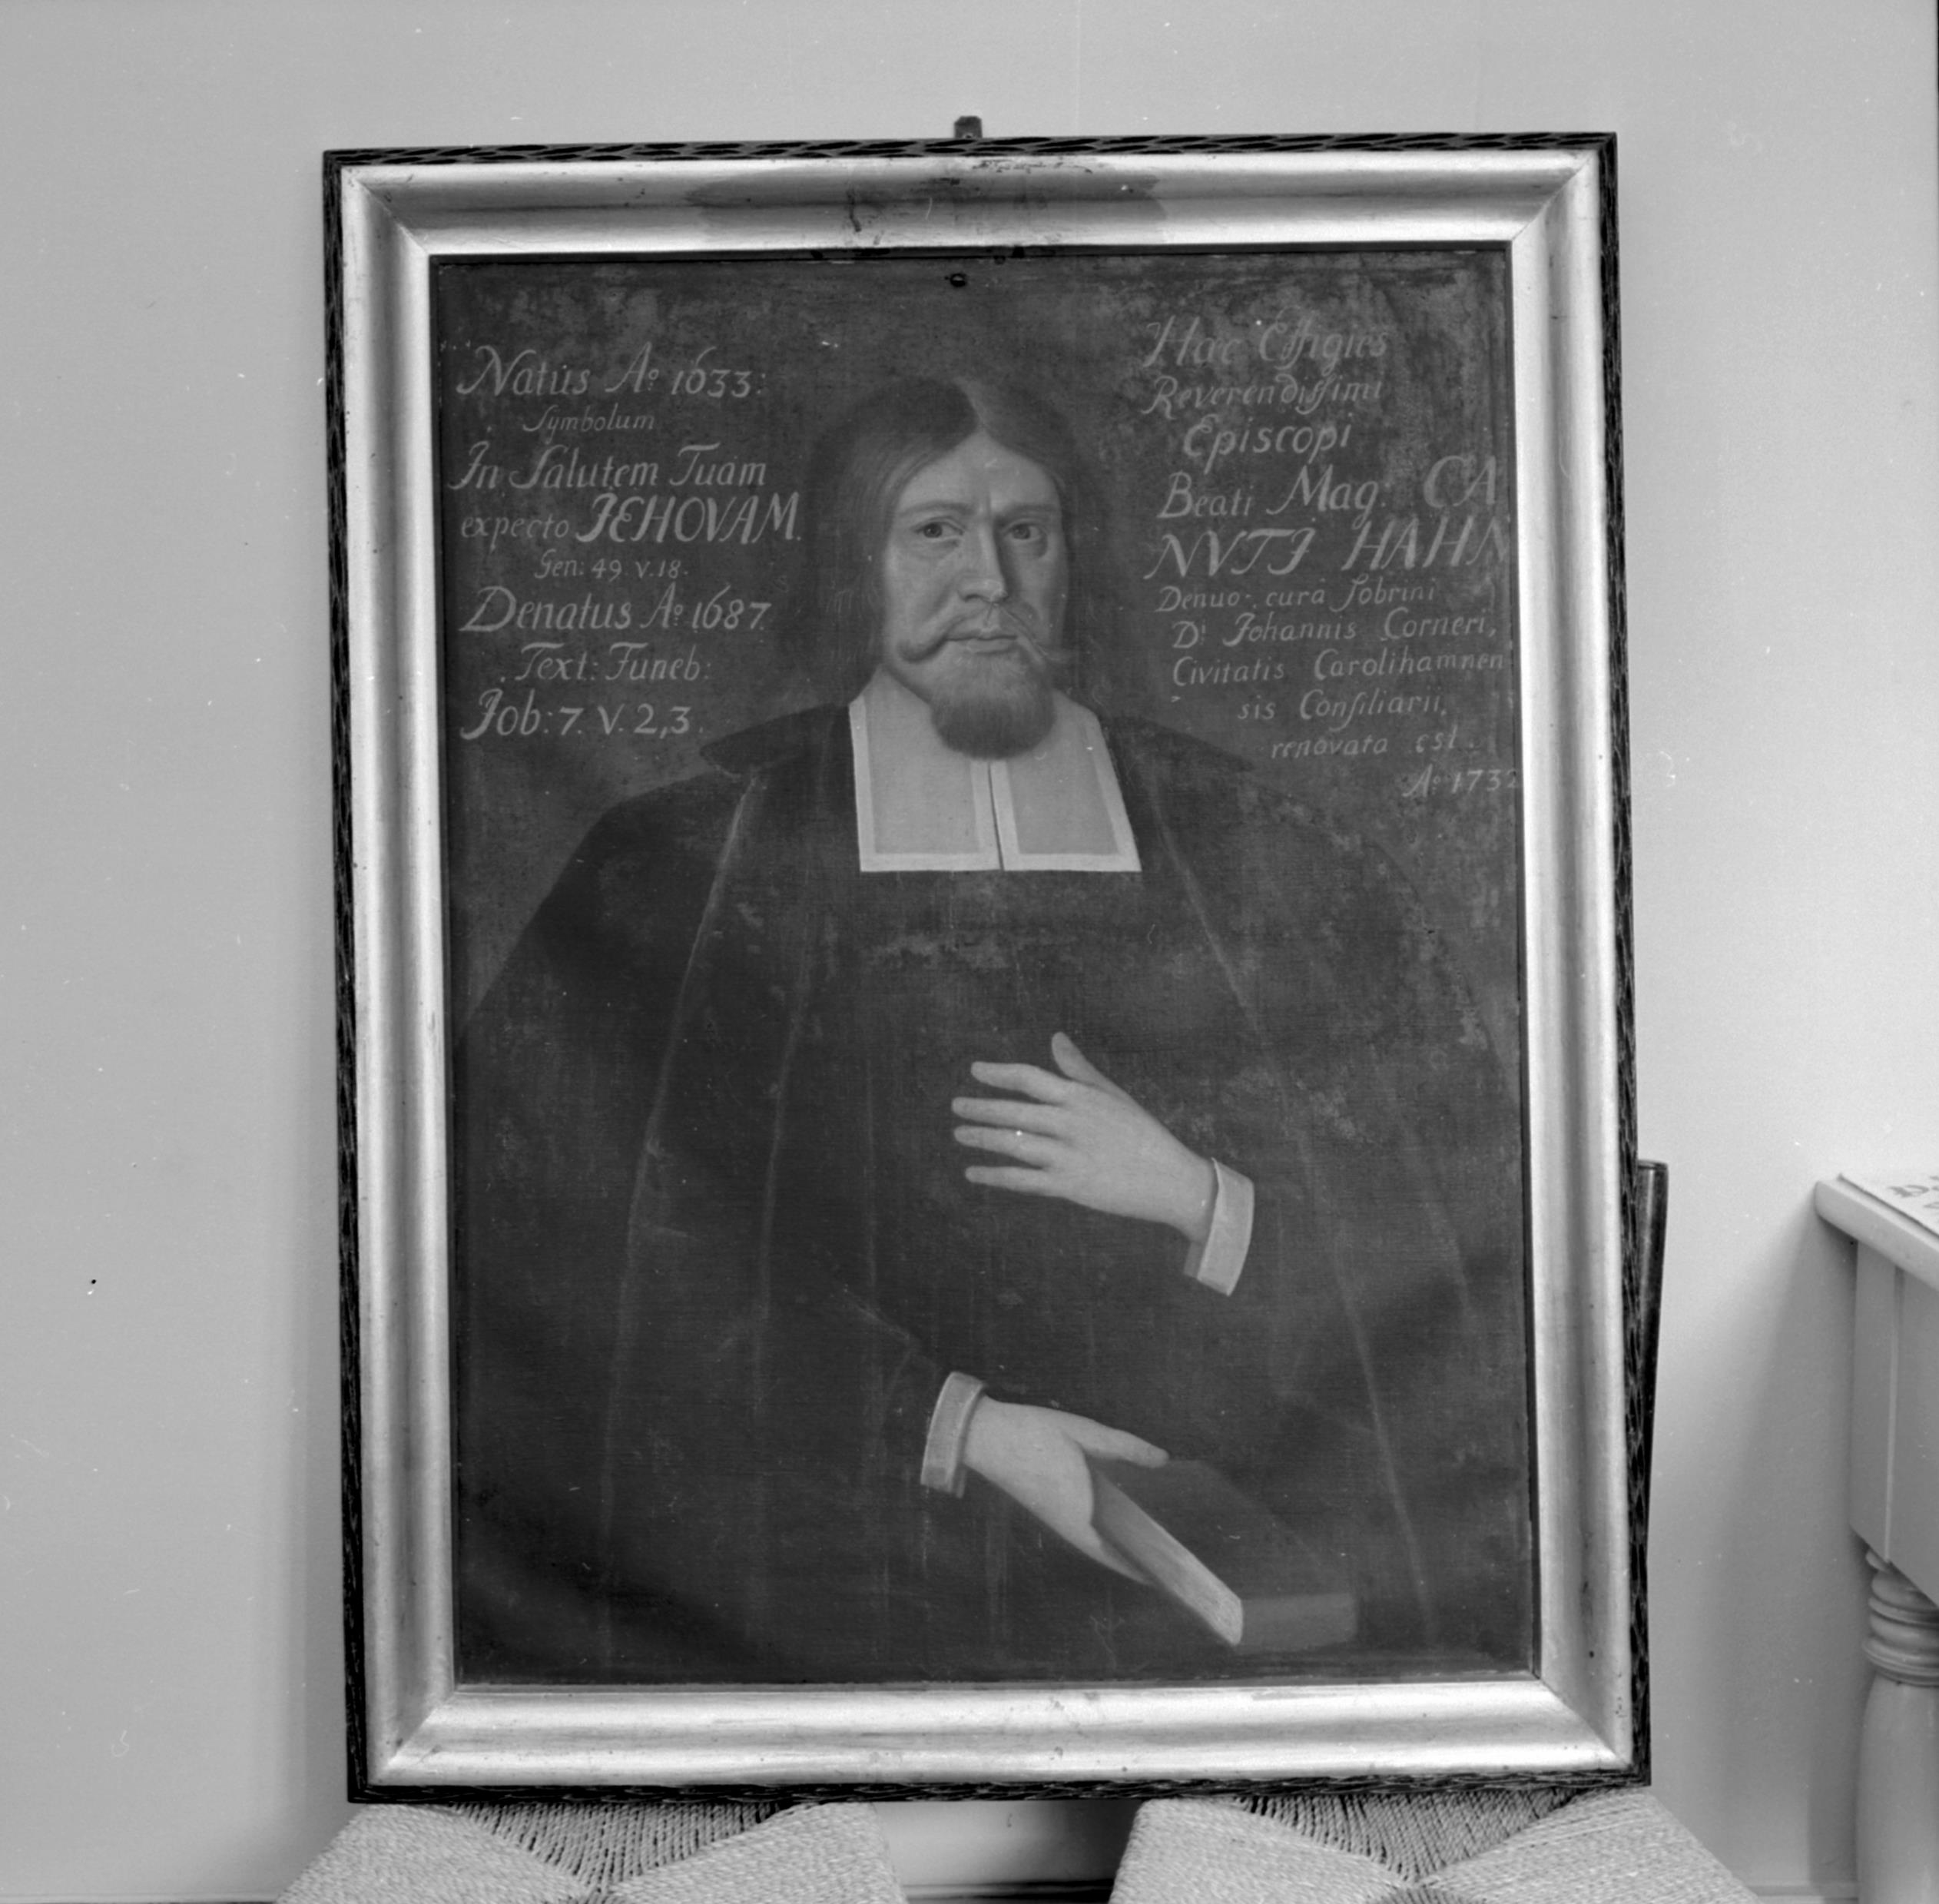 Natus Aº 1633:
Symbolum
In Salutem Tuam
expecto JEHOVAM.
Gen: 49 v.18.
Denatus Aº 1687.
Text: Funeb:
Job: 7. V. 2,3.
Hac Effigies
Reverendissimi
Episcopi
Beati Mag. CA
NVTJ HAHN
Denuo cura Sobrini
Dⁱ Johannis Corneri,
Civitatis Carolihamnen
sis Consiliarii,
renovata est.
Aº 1732